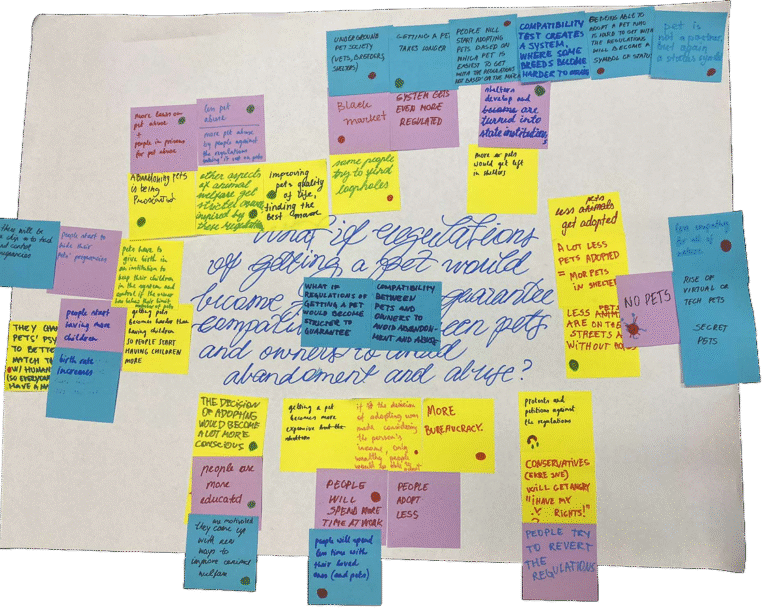 UNDERGROUND
PET SOCIETY
(VETS, BREEDERS,
SHELTERS)
GETTING A PET
TAKES LONGER
PEOPLE WILL
START ADOPTING
PETS BASED ON
WHICH PET IS
EASIEST TO GET
WITH THE REGULATIONS
NOT BASED ON THE
COMPATIBILITY
TEST CREATES
A SYSTEM,
WHERE SOME
BREEDS BECOME
HARDER TO
ADOPT A PET
IS HARD TO GET WITH
THE REGULATIONS
WILL BECOME A
SYMBOL OF STATUS
pet is
not a partner,
but again
a status symbol
more laws on
pet abuse
+
people in prisons
for pet abuse
less pet
abuse
more pet abuse
by people against
the regulations
Black
market
SYSTEM GETS
EVEN MORE
REGULATED
shelters
develop and
become are
turned into
state institutions
ABANDONING PETS
IS BEING
other aspects
of animal
welfare get
stricter
inspired by
these regulations
Improving
pets quality
of life,
finding the
best
some people
try to find
loopholes
more pets
would get left
in shelters
What if regulations
of getting a pet would
become
guarantee
between pets
and owners to avoid
abandoment and abuse?
WHAT IF
REGULATIONS OF
GETTING A PET
WOULD BECOME
STRICTER TO
GUARANTEE
COMPATIBILITY
BETWEEN
PETS AND
OWNERS TO
AVOID ABANDON-
MENT AND ABUSE
there will be
people start to
hide their
pets' pregnancies
pets have to
give birth in
an institution to
keep their children
in the system and
people start
having more
children
getting pets
becomes harder than
having children.
SO PEOPLE START
HAVING CHILDREN
MORE
THEY
PETS'
TO BETTER
MATCH
W/ HUMANS
birth rate
increases
less PETS
get adopted
A LOT LESS
PETS ADOPTED
= MORE PETS
IN SHELTERS
LESS PETS
ARE ON THE
STREETS
WITHOUT
NO PETS
RISE OF
VIRTUAL OR
TECH PETS
SECRET
PETS
THE DECISION
OF ADOPTING
WOULD BECOME
A LOT MORE
CONSCIOUS
getting a pet
becomes more
expensive
if the decision
of adopting was
made considering
the person's
income, only
wealthy people
would be able to adopt
MORE
BUREAUCRACY.
Protests and
petitions against
the regulations
people are
more
educated
PEOPLE
WILL
SPEND MORE
TIME AT WORK
PEOPLE
ADOPT
LESS
CONSERVATIVES
(EKRE SNE)
WILL GET ANGRY
"I HAVE MY
RIGHTS!"
are motivated
they come up
with new
ways to
improve animal
welfare
people will spend
less time with
their loved
ones (and pets)
PEOPLE TRY
TO REVERT
THE
REGULATIONS